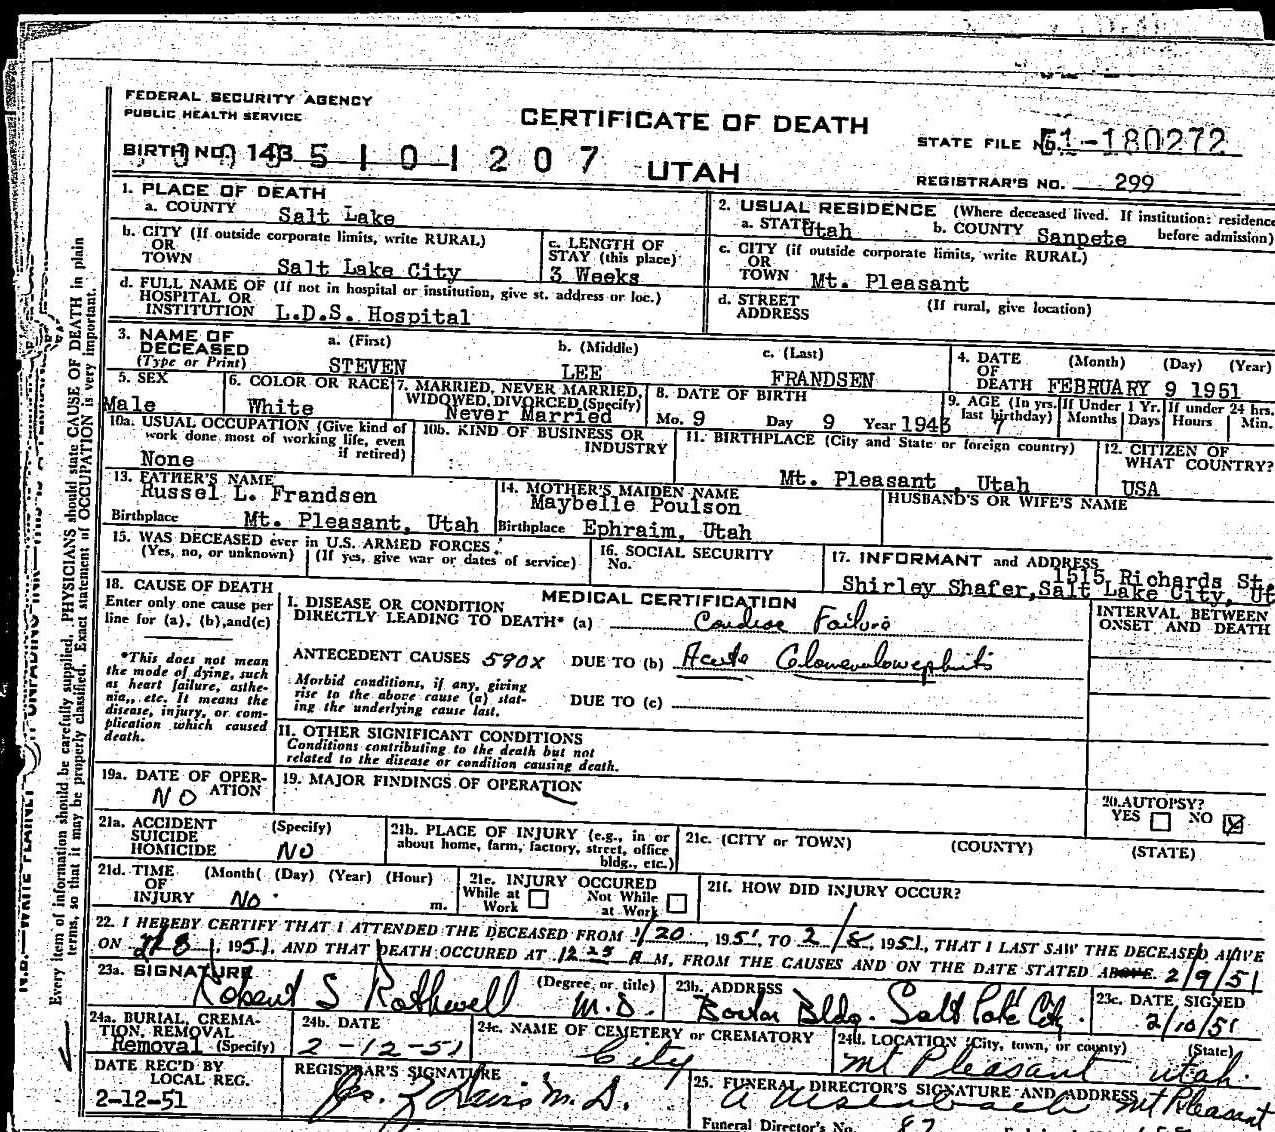 FEDERAL SECURITY AGENCY
PUBLIC HEALTH SERVICE
CERTIFICATE OF DEATH
STATE FILE No. 51-180272
BIRTH NO. 143 5 1 0 1 2 0 7
UTAH
REGISTRAR'S NO. 299
1. PLACE OF DEATH
a. COUNTY Salt Lake
2. USUAL RESIDENCE (Where deceased lived. If institution: residence
a. STATE Utah b. COUNTY Sanpete before admission)
b. CITY (If outside corporate limits, write RURAL)
OR
TOWN Salt Lake City
c. LENGTH OF
STAY (this place)
3 Weeks
c. CITY (if outside corporate limits, write RURAL)
OR
TOWN Mt. Pleasant
d. FULL NAME OF (If not in hospital or institution, give st. address or loc.)
HOSPITAL OR
INSTITUTION L.D.S. Hospital
d. STREET (If rural, give location)
ADDRESS
3. NAME OF
DECEASED
(Type or Print)
a. (First) b. (Middle) c. (Last)
STEVEN LEE FRANDSEN
4. DATE (Month) (Day) (Year)
OF
DEATH FEBRUARY 9 1951
5. SEX
Male
6. COLOR OR RACE
White
7. MARRIED, NEVER MARRIED,
WIDOWED, DIVORCED (Specify)
Never Married
8. DATE OF BIRTH
Mo. 9 Day 9 Year 1943
9. AGE (In yrs. last birthday) 7
If Under 1 Yr. Months Days
If under 24 hrs. Hours Min.
10a. USUAL OCCUPATION (Give kind of
work done most of working life, even
if retired)
None
10b. KIND OF BUSINESS OR
INDUSTRY
11. BIRTHPLACE (City and State or foreign country)
Mt. Pleasant , Utah
12. CITIZEN OF
WHAT COUNTRY?
USA
13. FATHER'S NAME
Russel L. Frandsen
Birthplace Mt. Pleasant, Utah
14. MOTHER'S MAIDEN NAME
Maybelle Poulson
Birthplace Ephraim, Utah
HUSBAND'S OR WIFE'S NAME
15. WAS DECEASED ever in U.S. ARMED FORCES?
(Yes, no, or unknown) (If yes, give war or dates of service)
16. SOCIAL SECURITY
No.
17. INFORMANT and ADDRESS
1515 Richards St.
Shirley Shafer, Salt Lake City, Ut
18. CAUSE OF DEATH
Enter only one cause per
line for (a), (b), and (c)
*This does not mean
the mode of dying, such
as heart failure, asthe-
nia, etc. It means the
disease, injury, or com-
plication which caused
death.
MEDICAL CERTIFICATION
I. DISEASE OR CONDITION
DIRECTLY LEADING TO DEATH* (a) Cardiac Failure
ANTECEDENT CAUSES 590X DUE TO (b) Acute Glomerulonephritis
Morbid conditions, if any, giving
rise to the above cause (a) stat-
ing the underlying cause last.
DUE TO (c)
INTERVAL BETWEEN
ONSET AND DEATH
II. OTHER SIGNIFICANT CONDITIONS
Conditions contributing to the death but not
related to the disease or condition causing death.
19a. DATE OF OPER-
ATION
NO
19. MAJOR FINDINGS OF OPERATION
20. AUTOPSY?
YES NO
21a. ACCIDENT (Specify)
SUICIDE
HOMICIDE NO
21b. PLACE OF INJURY (e.g., in or
about home, farm, factory, street, office
bldg., etc.)
21c. (CITY or TOWN) (COUNTY) (STATE)
21d. TIME (Month) (Day) (Year) (Hour)
OF
INJURY No. m.
21e. INJURY OCCURED
While at Work Not While at Work
21f. HOW DID INJURY OCCUR?
22. I HEREBY CERTIFY THAT I ATTENDED THE DECEASED FROM 1/20, 1951, TO 2/8, 1951, THAT I LAST SAW THE DECEASED ALIVE
ON 2/8, 1951, AND THAT DEATH OCCURED AT 12 25 A M, FROM THE CAUSES AND ON THE DATE STATED ABOVE. 2/9/51
23a. SIGNATURE (Degree, or title)
Robert S Rothwell M.D.
23b. ADDRESS
Boston Bldg. Salt Lake City.
23c. DATE SIGNED
2/10/51
24a. BURIAL, CREMA-
TION, REMOVAL
Removal (Specify)
24b. DATE
2-12-51
24c. NAME OF CEMETERY or CREMATORY
City
24d. LOCATION (City, town, or county) (State)
Mt Pleasant Utah
DATE REC'D BY
LOCAL REG.
2-12-51
REGISTRAR'S SIGNATURE
M.D.
25. FUNERAL DIRECTOR'S SIGNATURE AND ADDRESS
Mt Pleasant
Funeral Director's No. 87
Every item of information should be carefully supplied. PHYSICIANS should state CAUSE OF DEATH in plain
terms, so that it may be properly classified. Exact statement of OCCUPATION is very important.